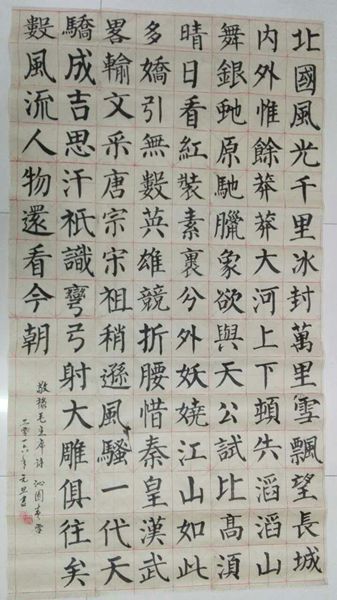 北國風光千里冰封萬里雪飄望長城
内外惟餘莽莽大河上下頓失滔滔山
舞銀虵原馳臘象欲與天公試比髙須
晴日看紅裝素裏兮外妖嬈江山如此
多嬌引無數英雄競折腰惜秦皇漢武
畧輸文采唐宗宋祖稍遜風騷一代天
驕成吉思汗祇識彎弓射大雕俱往矣
數風流人物還看今朝
敬錄毛主席詩 沁園春雪
二零一六年元旦書